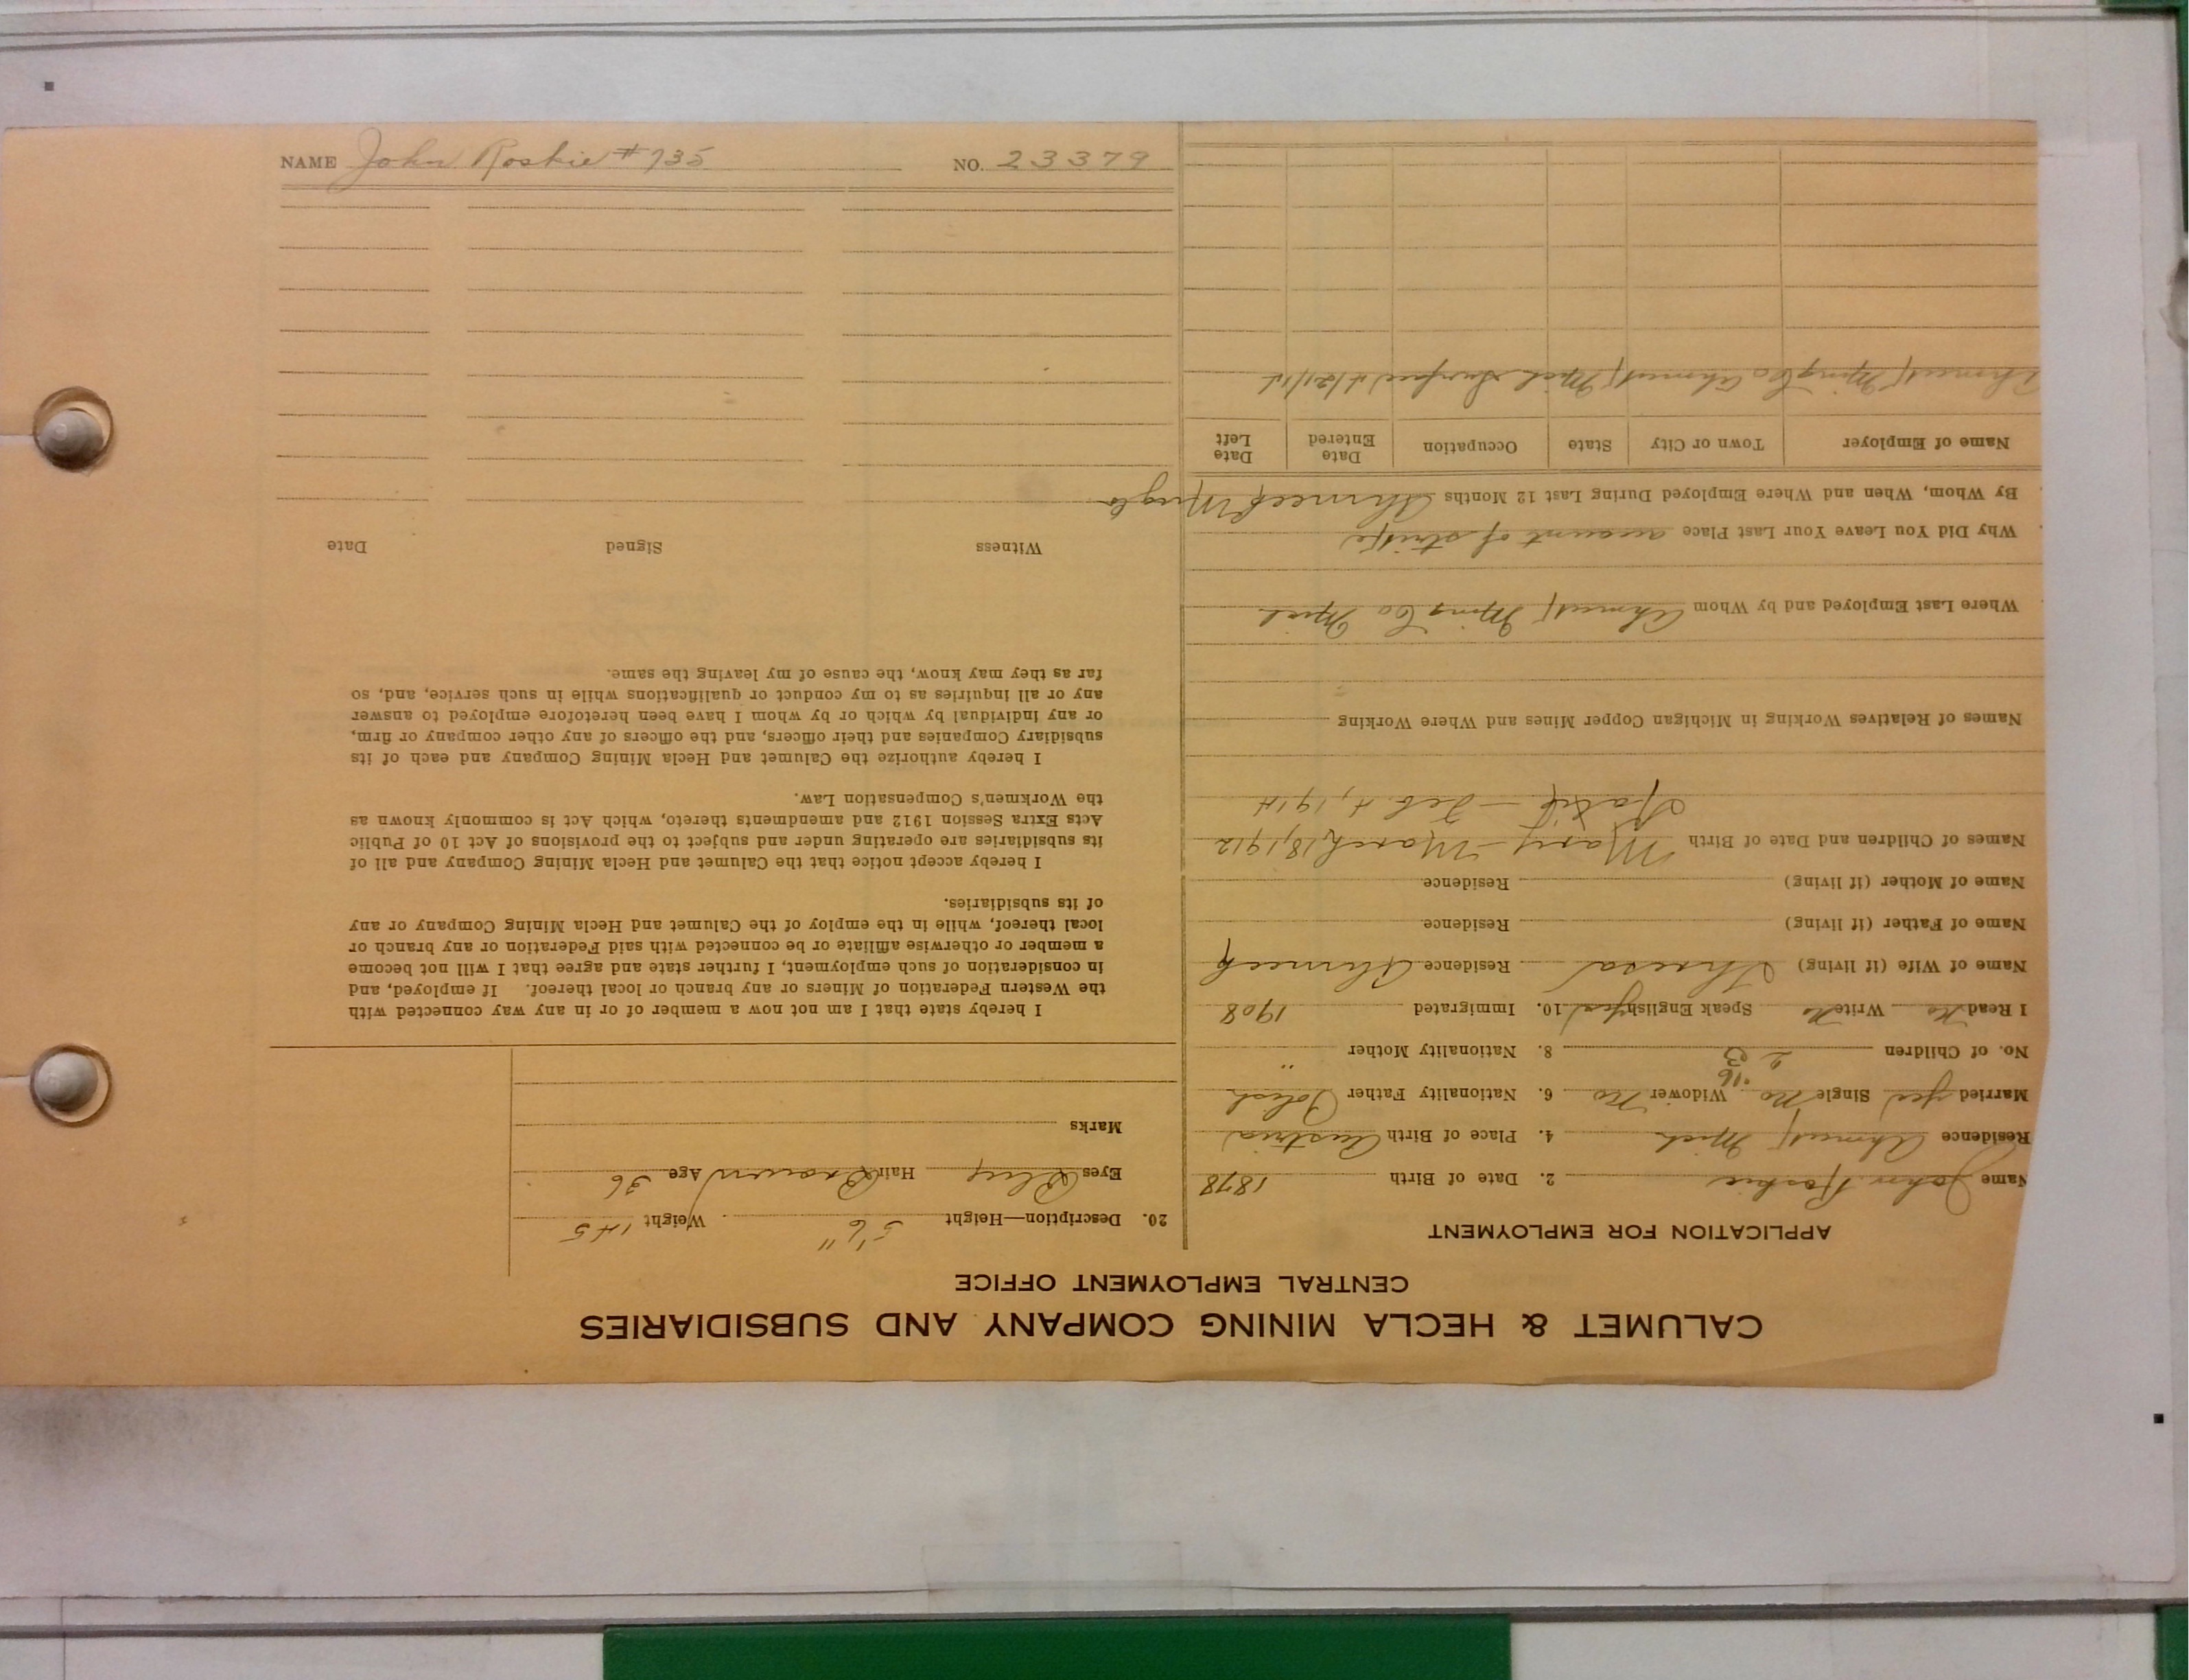 CALUMET & HECLA MINING COMPANY AND SUBSIDIARIES
CENTRAL EMPLOYMENT OFFICE
APPLICATION FOR EMPLOYMENT
Name John Roskie 2. Date of Birth 1878
Residence Ahmeek Mich 4. Place of Birth Austria
Married yes Single No Widower No 6. Nationality Father Polish
No. of Children 2 3 '16 8. Nationality Mother "
I Read No Write No Speak English yes 10. Immigrated 1908
Name of Wife (if living) Thresa Residence Ahmeek
Name of Father (if living) Residence
Name of Mother (if living) Residence
Names of Children and Date of Birth Mary - March, 18, 1912
- Feb. 4, 1914
Names of Relatives Working in Michigan Copper Mines and Where Working
Where Last Employed and by Whom Ahmeek Ming Co Mich
Why Did You Leave Your Last Place account of strike
By Whom, When and Where Employed During Last 12 Months Ahmeek Mng Co
Name of Employer Town or City State Occupation Date Entered Date Left
Ahmeek Ming Co Ahmeek Mich Surface 4/21/14
20. Description—Height 5' 6" Weight 145
Eyes Blue Hair Brown Age 36
Marks
I hereby state that I am not now a member of or in any way connected with
the Western Federation of Miners or any branch or local thereof. If employed, and
in consideration of such employment, I further state and agree that I will not become
a member or otherwise affiliate or be connected with said Federation or any branch or
local thereof, while in the employ of the Calumet and Hecla Mining Company or any
of its subsidiaries.
I hereby accept notice that the Calumet and Hecla Mining Company and all of
its subsidiaries are operating under and subject to the provisions of Act 10 of Public
Acts Extra Session 1912 and amendments thereto, which Act is commonly known as
the Workmen's Compensation Law.
I hereby authorize the Calumet and Hecla Mining Company and each of its
subsidiary Companies and their officers, and the officers of any other company or firm,
or any individual by which or by whom I have been heretofore employed to answer
any or all inquiries as to my conduct or qualifications while in such service, and, so
far as they may know, the cause of my leaving the same.
Witness Signed Date
NAME John Roskie #735 NO. 23379